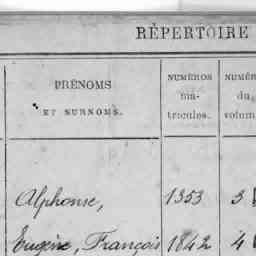 RÉPERTOIRE
PRÉNOMS
ET SURNOMS.
NUMÉROS
ma-
tricules.
NUMÉR
du
volum
Alphonse, 1353 3
Eugène, François 1842 4